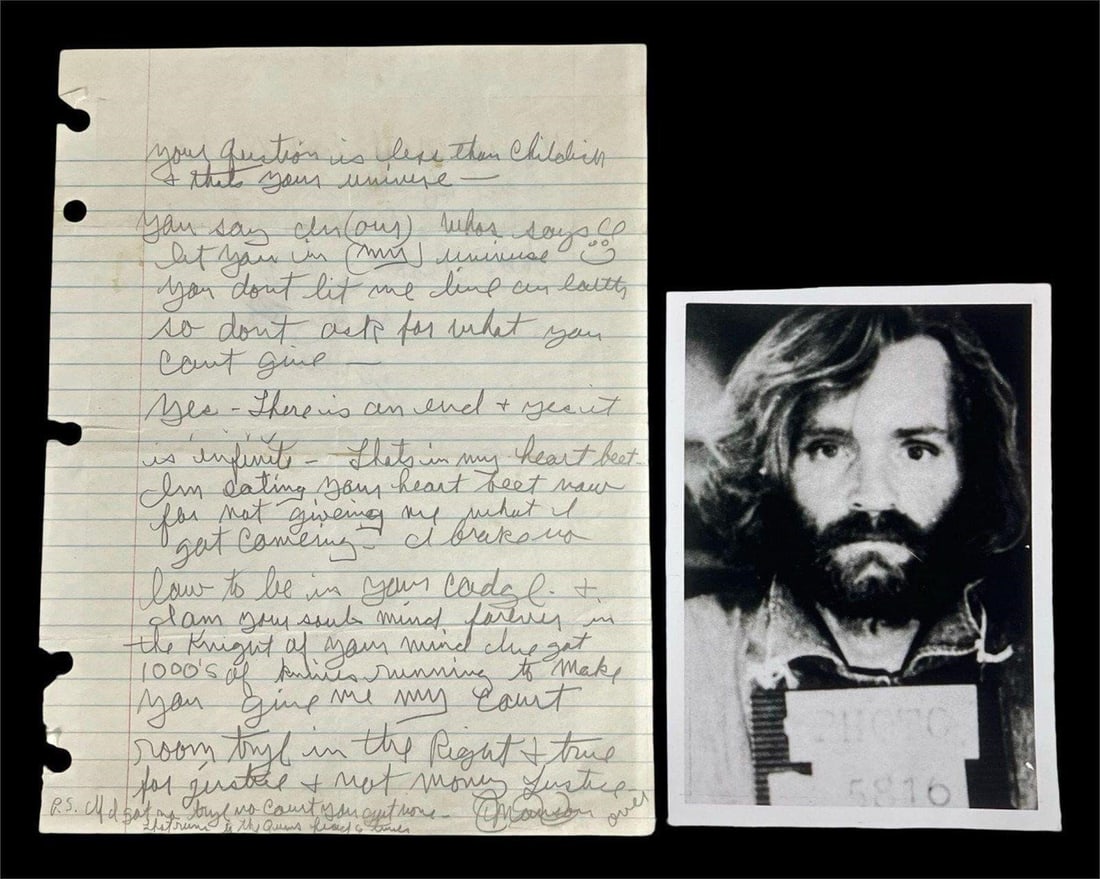 your question is less than childish
& thats your universe —
you say in (our) whos says
let you in (my) universe
you dont let me live on earth
so dont ask for what you
cant give —
yes - There is an end & yes it
is infinite - Thats in my heart beet -
Im eating your heart beet now
for not giveing me what I
got comeing - I brake no
law to be in your cadge. &
I am your souls mind forever in
the Knight of your mind Ive got
1000's of knives running to make
you give me my court
room tryl in the Right & true
for justice & not money Justice
P.S. If I got no tryl no court you got none - Manson over
to the Queens head 6 times
PHOTO
5816